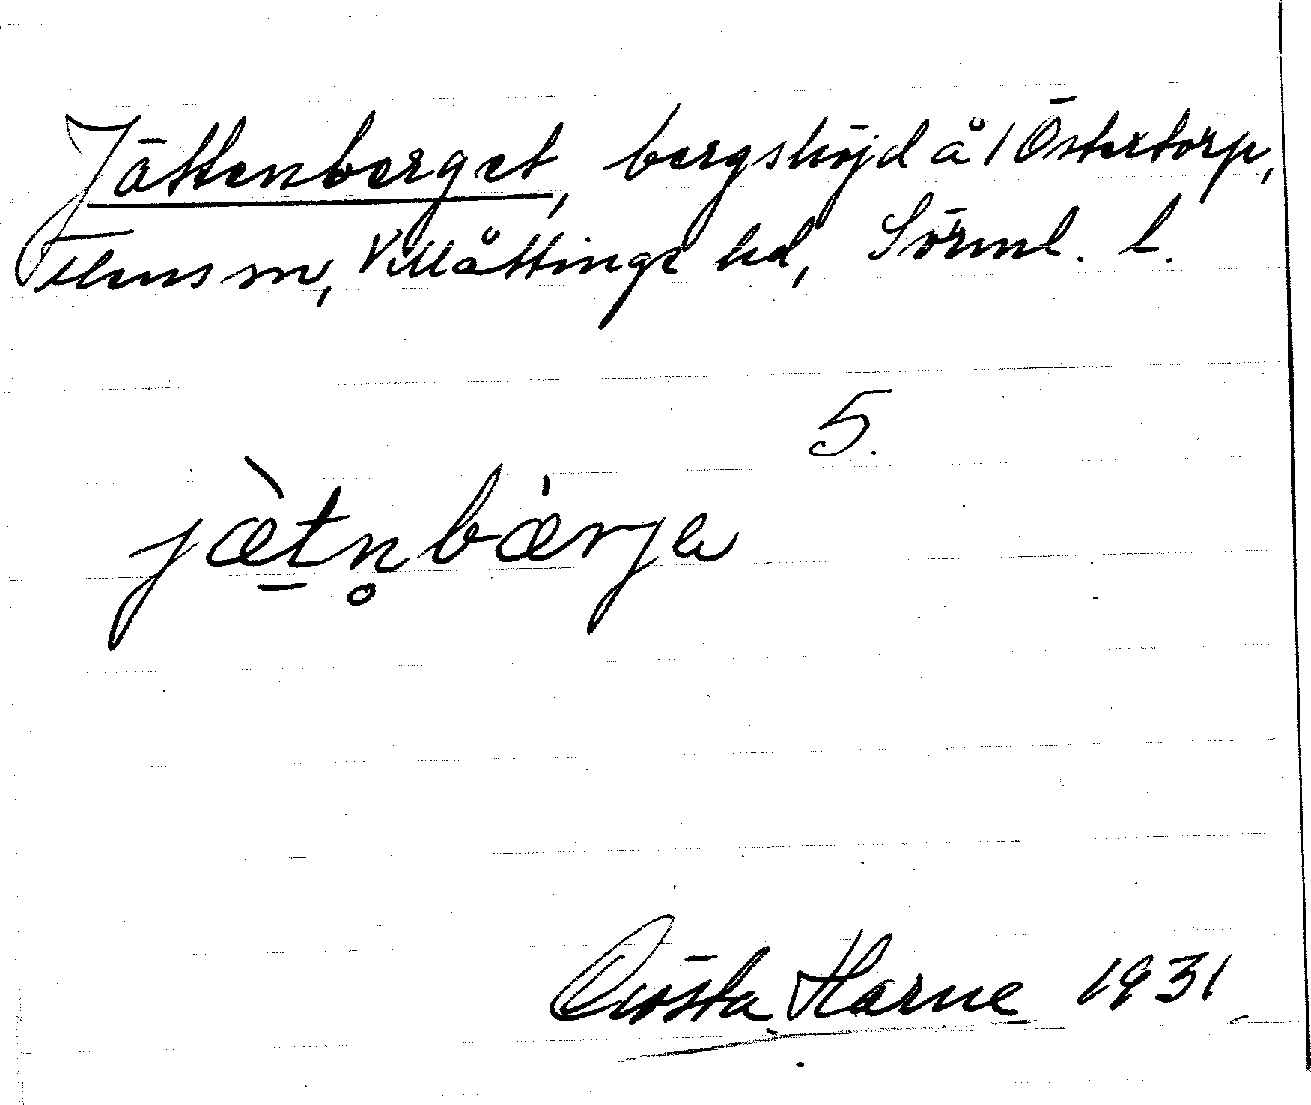 Jättenberget, bergshöjd å 1 Östertorp,
Flens sn, Villåttinge hd, Sörml. l.
5.
jæ̀t̠n̥bæ̀rja
Gösta Harne 1931